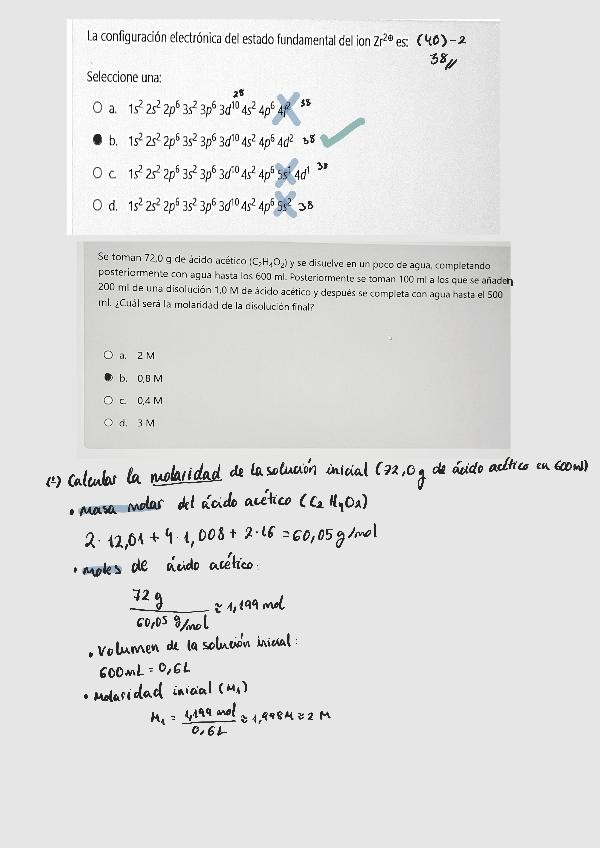 La configuración electrónica del estado fundamental del ion Zr²⊕ es: (40)-2
38//
Seleccione una:
28
a. 1s² 2s² 2p⁶ 3s² 3p⁶ 3d¹⁰ 4s² 4p⁶ 38
b. 1s² 2s² 2p⁶ 3s² 3p⁶ 3d¹⁰ 4s² 4p⁶ 4d² 38
c. 1s² 2s² 2p⁶ 3s² 3p⁶ 3d¹⁰ 4s² 4p⁶ 5s¹ 4d¹ 38
d. 1s² 2s² 2p⁶ 3s² 3p⁶ 3d¹⁰ 4s² 4p⁶ 5s² 38
Se toman 72,0 g de ácido acético (C₂H₄O₂) y se disuelve en un poco de agua, completando
posteriormente con agua hasta los 600 ml. Posteriormente se toman 100 ml a los que se añaden
200 ml de una disolución 1,0 M de ácido acético y después se completa con agua hasta el 500
ml. ¿Cuál será la molaridad de la disolución final?
a. 2 M
b. 0,8 M
c. 0,4 M
d. 3 M
Calcular la molaridad de la solución inicial (72,0 g de ácido acético en 600ml)
• masa molar del ácido acético (C₂H₄O₂)
2 · 12,01 + 4 · 1,008 + 2 · 16 = 60,05 g/mol
• moles de ácido acético:
72 g
60,05 g/mol ≈ 1,199 mol
• Volumen de la solución inicial:
600mL = 0,6L
• Molaridad inicial (M₁)
M₁ = 1,199 mol ≈ 1,998M ≈ 2 M
0,6L